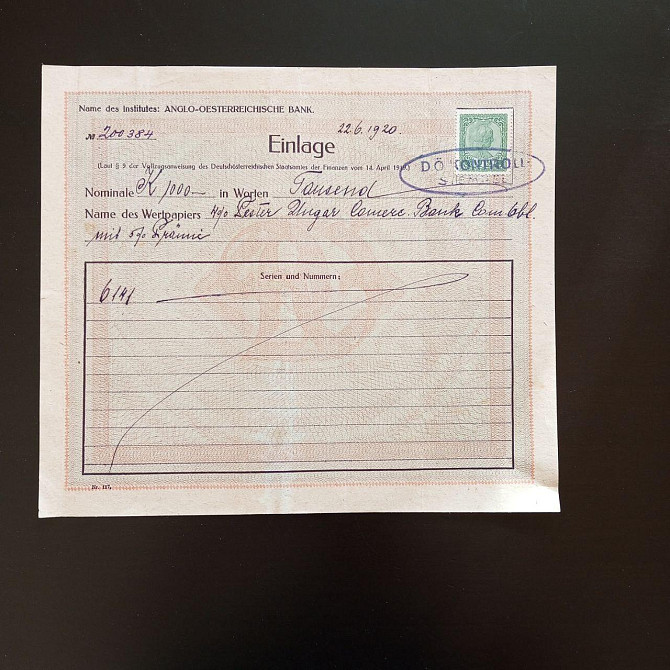 Name des Institutes: ANGLO-OESTERREICHISCHE BANK.
№ 200384
22.6.1920.
Einlage
(Laut § 9 der Vollzugsanweisung des Deutschösterreichischen Staatsamtes der Finanzen vom 14. April 1919.)
D.Ö. KONTROLL
Nominale K 1000— in Worten Tausend
Name des Wertpapiers 4% Pester Ungar Comerc. Bank Com Obl.
mit 5% Prämie
Serien und Nummern:
6141
Nr. 117.